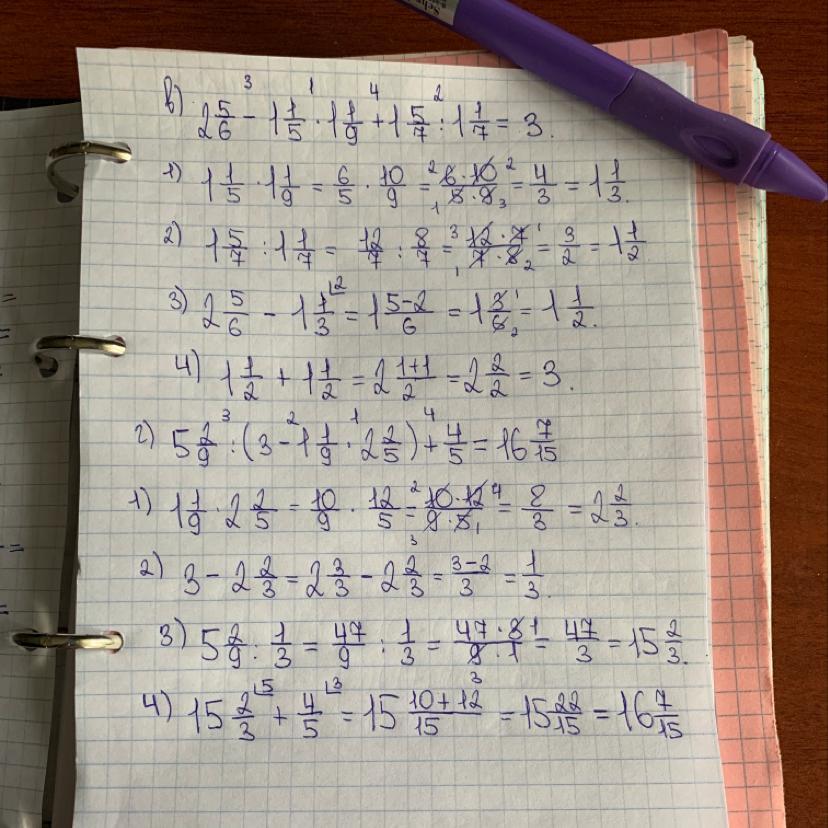 в) 2 5/6 -³ 1 1/5 ·¹ 1 1/9 +⁴ 1 5/7 :² 1 1/7 = 3.
1) 1 1/5 · 1 1/9 = 6/5 · 10/9 = 6·10/5·9 = 4/3 = 1 1/3.
2) 1 5/7 : 1 1/7 = 12/7 : 8/7 = 12·7/7·8 = 3/2 = 1 1/2
3) 2 5/6 - 1 1/3 = 1 5-2/6 = 1 3/6 = 1 1/2.
4) 1 1/2 + 1 1/2 = 2 1+1/2 = 2 2/2 = 3.
г) 5 2/9 :³ (3 -² 1 1/9 ·¹ 2 2/5) +⁴ 4/5 = 16 7/15
1) 1 1/9 · 2 2/5 = 10/9 · 12/5 = 10·12/9·5 = 8/3 = 2 2/3.
2) 3 - 2 2/3 = 2 3/3 - 2 2/3 = 3-2/3 = 1/3.
3) 5 2/9 : 1/3 = 47/9 : 1/3 = 47·3/9·1 = 47/3 = 15 2/3.
4) 15 2/3 + 4/5 = 15 10+12/15 = 15 22/15 = 16 7/15